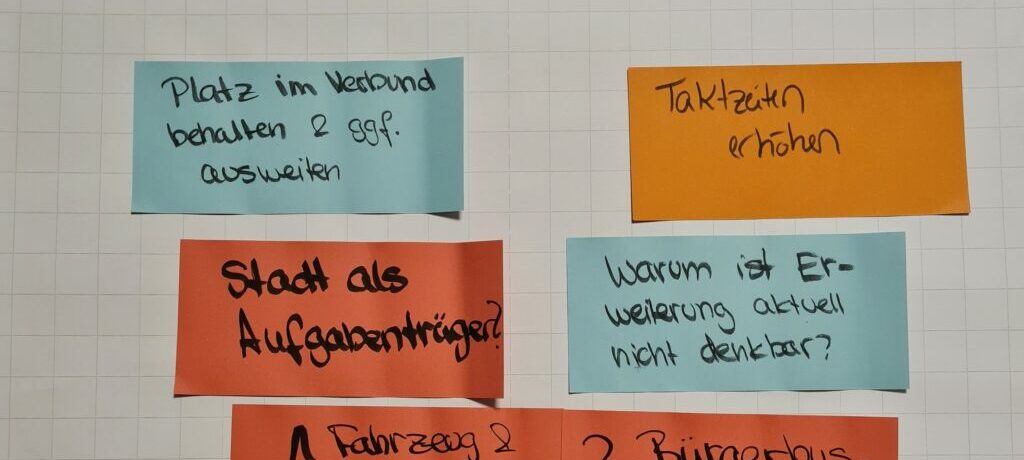 Platz im Verbund
behalten & ggf.
ausweiten
Taktzeiten
erhöhen
Stadt als
Aufgabenträger?
Warum ist Er-
weiterung aktuell
nicht denkbar?
1 Fahrzeug &
2 Bürgerbus